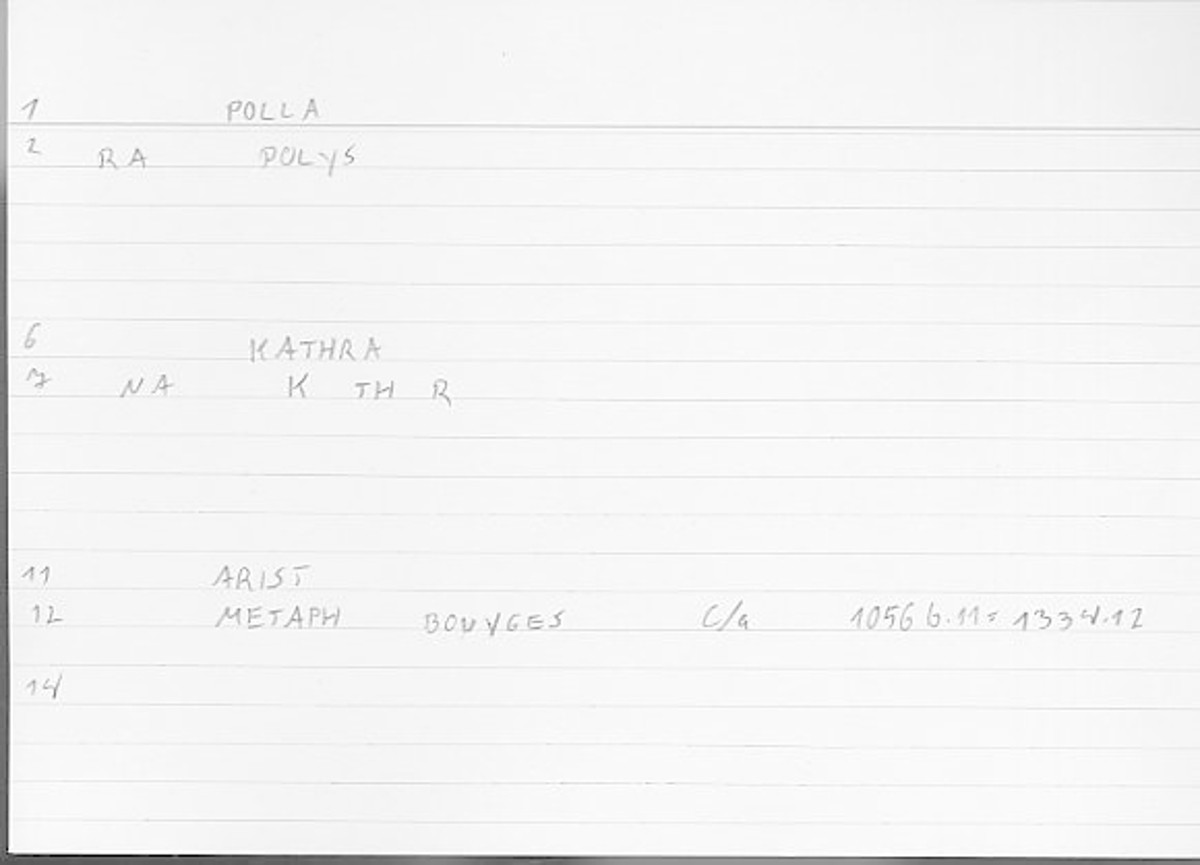 1 POLLA
2 RA POLYS
6 KATHRA
7 NA K TH R
11 ARIST
12 METAPH BOUYGES C/a 1056 b.11 = 1334.12
14